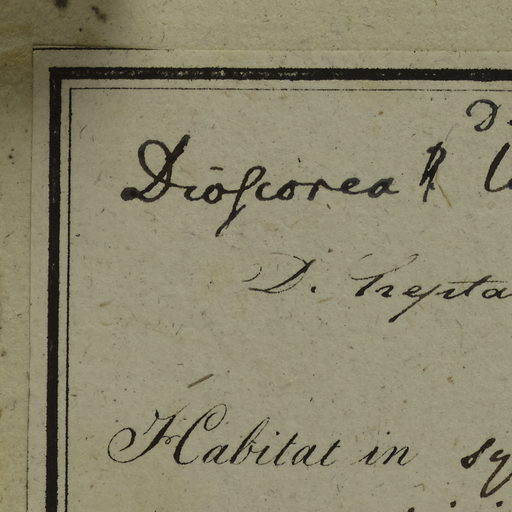 D.
Dioscorea
D. hepta
Habitat in sy